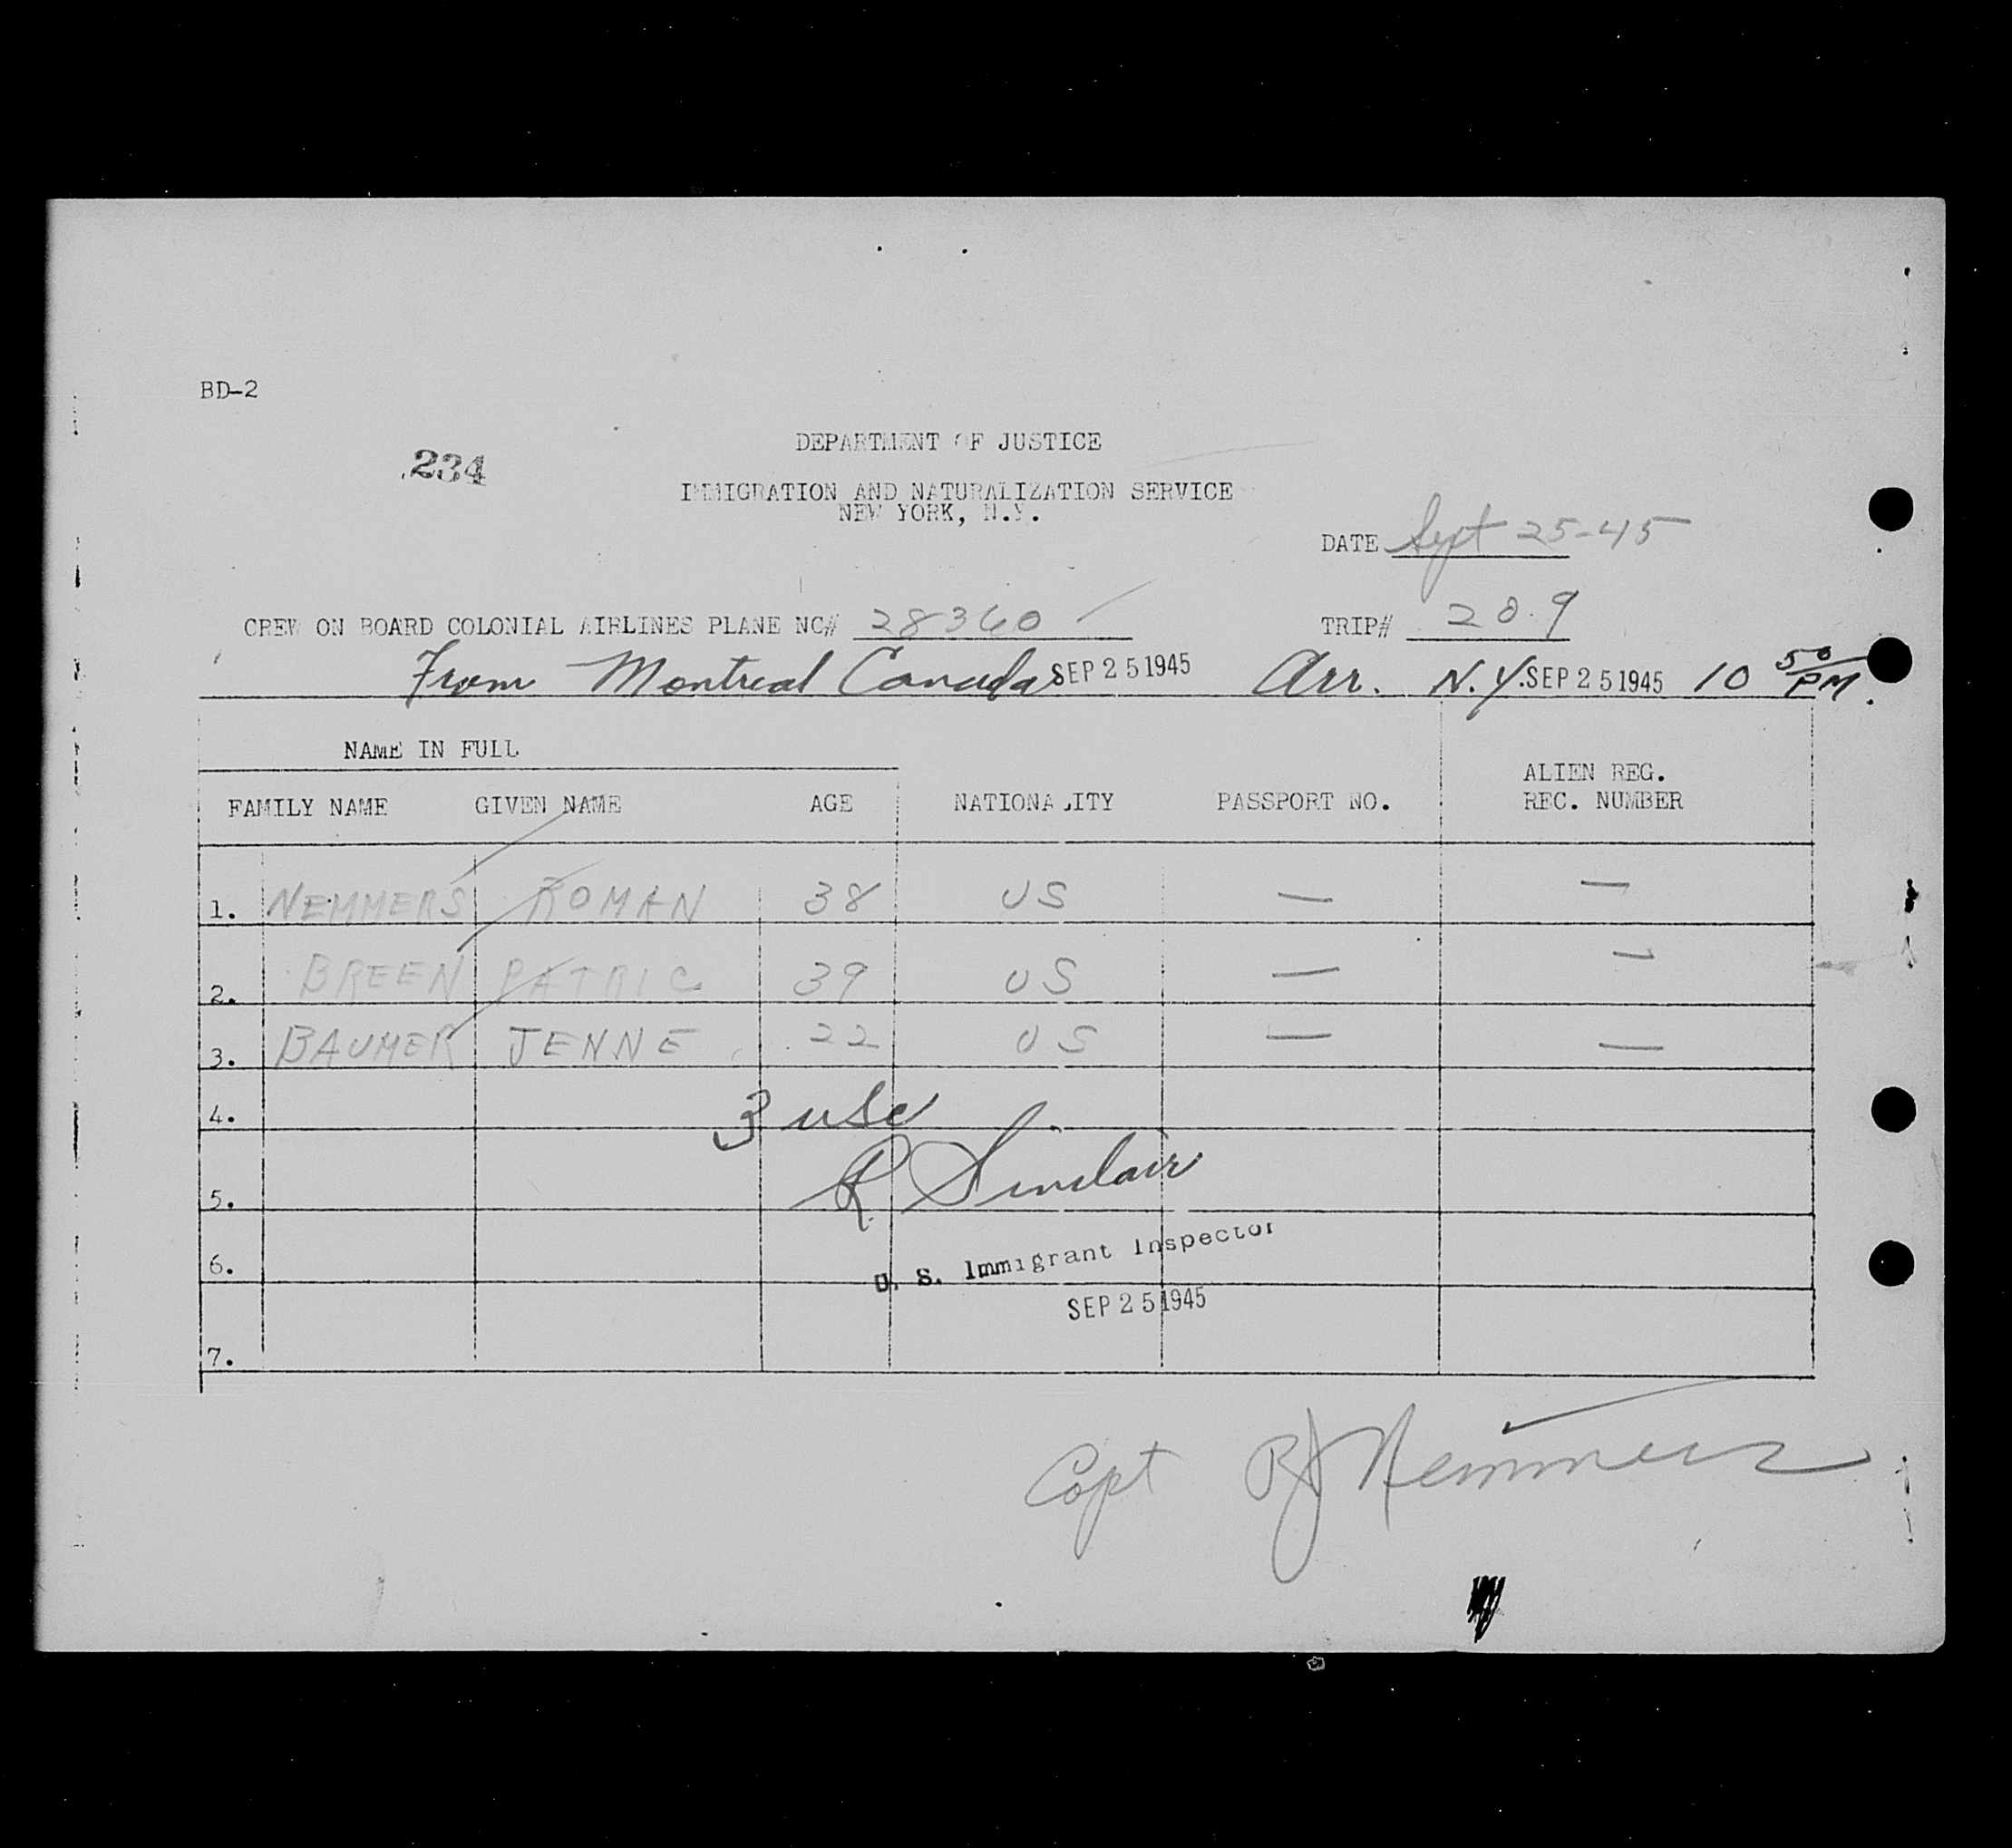 BD-2
234
DEPARTMENT OF JUSTICE
IMMIGRATION AND NATURALIZATION SERVICE
NEW YORK, N.Y.
DATE Sept 25-45
CREW ON BOARD COLONIAL AIRLINES PLANE NC# 28360 TRIP# 209
From Montreal Canada SEP 25 1945 Arr. N.Y. SEP 25 1945 10 50 PM.
NAME IN FULL
FAMILY NAME GIVEN NAME AGE NATIONALITY PASSPORT NO. ALIEN REG. REC. NUMBER
1. NEMMERS ROMAN 38 US — —
2. BREEN PATRIC 39 US — —
3. BAUMER JENNE 22 US — —
4. 3 usc
5. R Sinclair
6. U. S. Immigrant Inspector
SEP 25 1945
7.
Capt RJ Nemmers